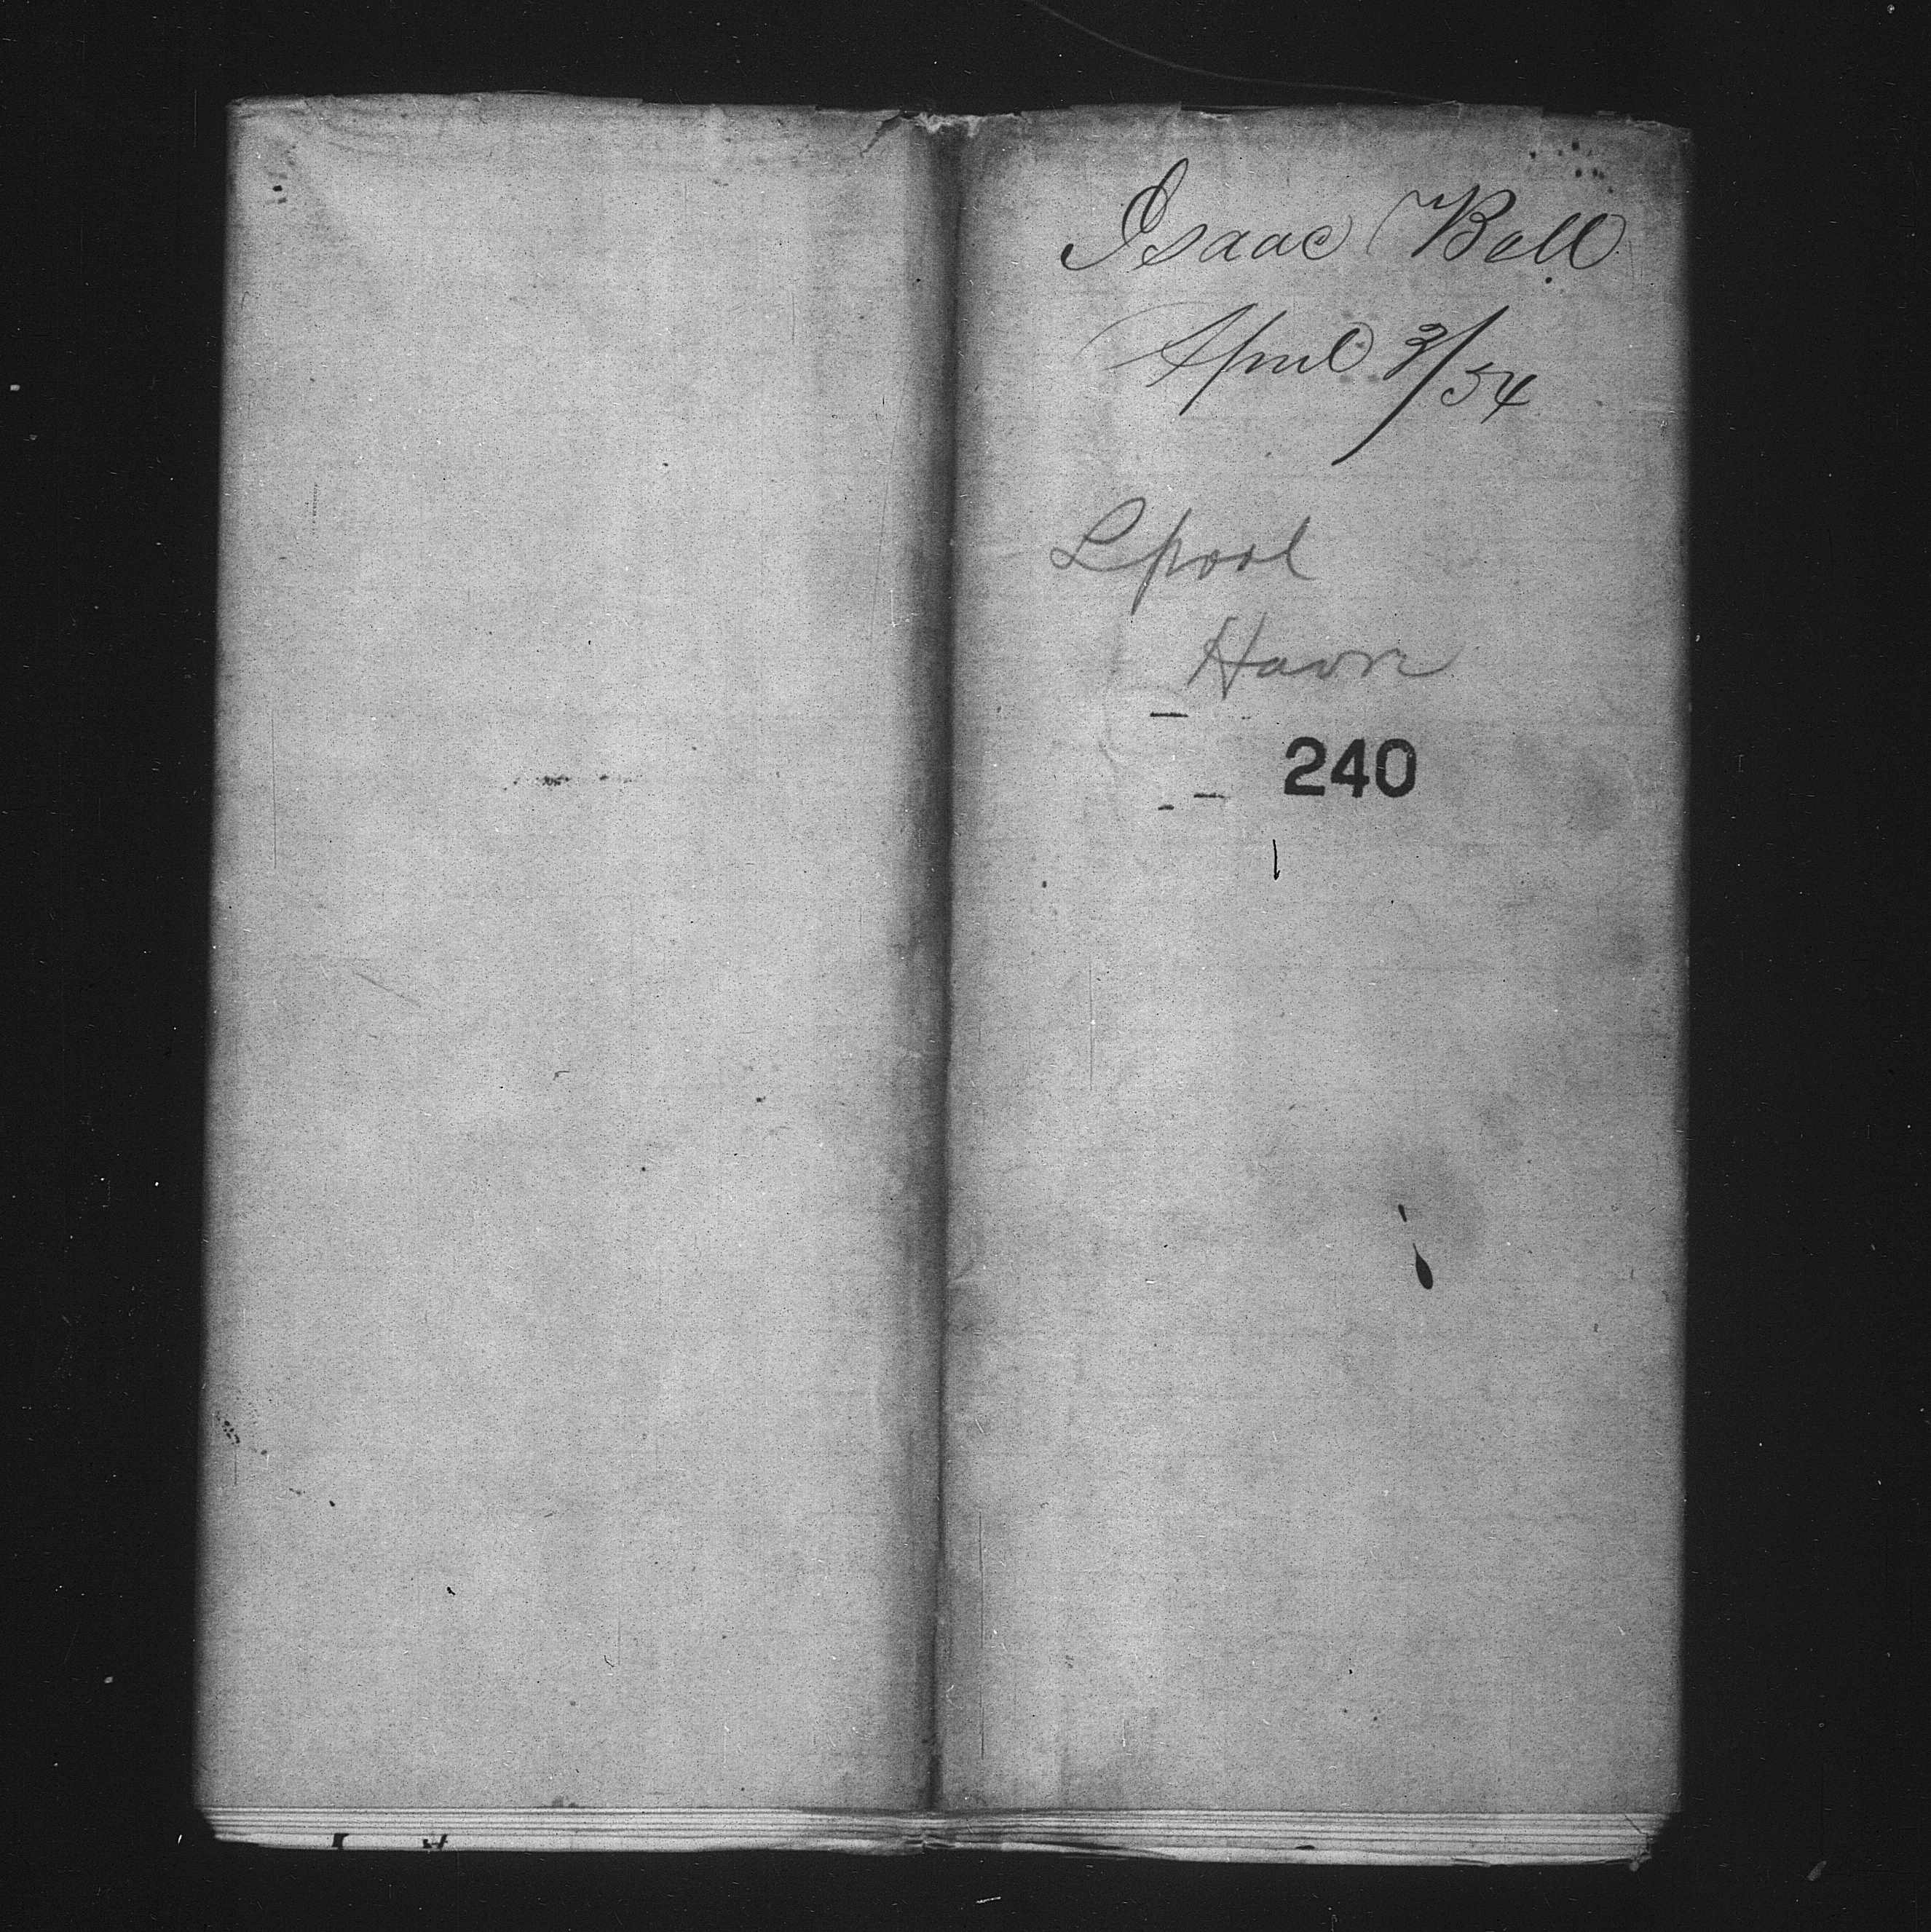 Isaac Bell
April 3/54
Lpool
Havre
240